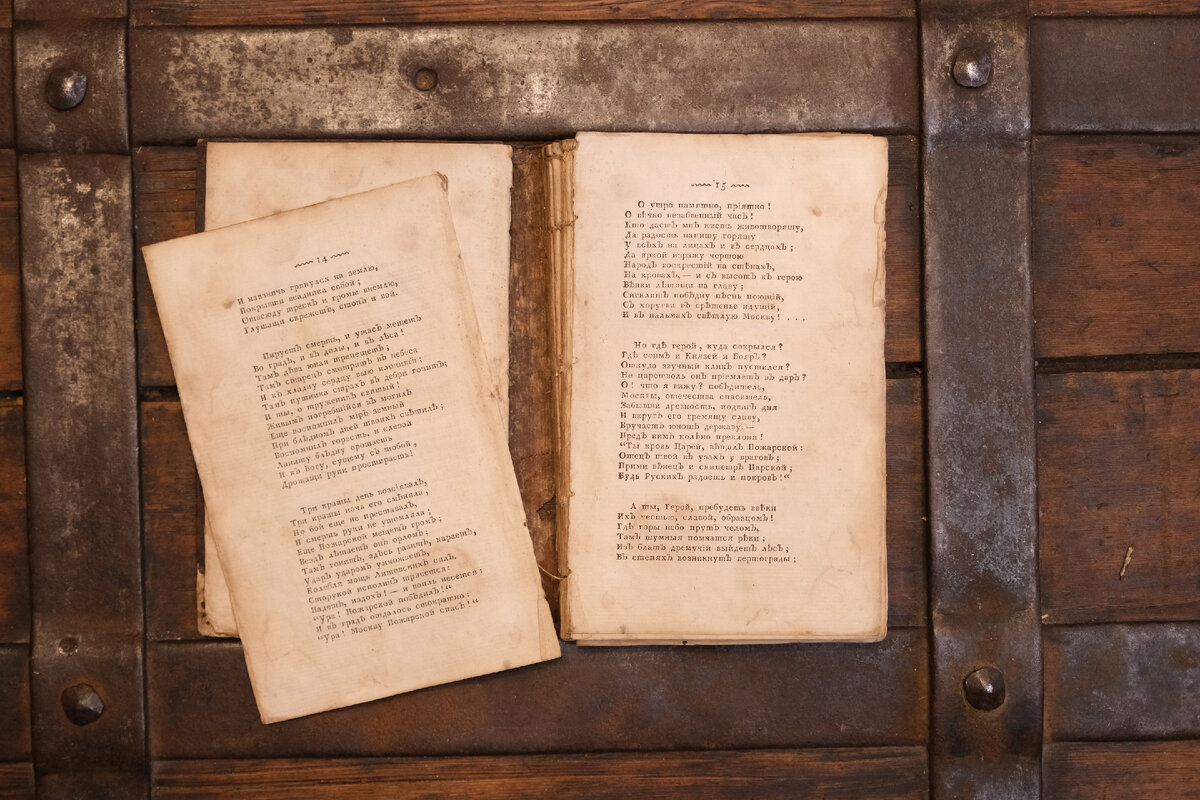 14
И навзничь грянулся на землю,
Покрывши всадника собой;
Отвсюду трескъ и громы внемлю,
Глушащи скрежетъ, стонъ и вой.
Пируетъ смерть, и ужасъ мещетъ
Во градъ, и въ долы, и въ лѣса!
Тамъ дѣва юная трепещетъ;
Тамъ старецъ смотритъ въ небеса
И къ хладну сердцу выю клонитъ;
Тамъ путника страхъ въ дебри гонитъ;
И ты, о труженникъ святый!
Живымъ погребшійся въ могилѣ
Еще воспомнилъ міръ земный
При блѣдномъ дней твоихъ свѣтилѣ;
Воспомнилъ горесть, и слезой
Ланиту блѣдну орошаешь
И къ Богу, сущему съ тобой,
Дрожащи руки простираешь!
Три краты день возсіявалъ,
Три краты ночь его смѣняла,
Но бой еще не преставалъ,
И смерть руки не утомляла;
Еще Пожарской мещетъ громъ;
Вездѣ летаетъ онъ орломъ;
Тамъ гонитъ, здѣсь разитъ, караетъ,
Ударъ ударомъ умножаетъ,
Колебля мощь Литовскихъ силъ.
Сторукой исполинъ трясется:
Падетъ, издохъ! — и вопль несется:
“Ура! Пожарской побѣдилъ!“
И въ градѣ отдалось стократно:
“Ура! Москву Пожарской спасъ!“
15
О утро памятно, пріятно!
О вѣчно незабвенный часъ!
Кто дастъ мнѣ кисть животворящу,
Да радость напишу горящу
У всѣхъ на лицахъ и въ сердцахъ;
Да яркой изражу чертою
Народъ воскресшій на стѣнахъ,
На кровахъ, — и съ высотъ къ герою
Вѣнки летящи на главу;
Синклитъ побѣдну пѣснь поющій,
Съ хоругви въ срѣтенье идущій,
И въ пальмахъ свѣтлую Москву! . . .
Но гдѣ герой, куда сокрылся?
Гдѣ сонмъ и Князей и Бояръ?
Откуда звучный кликъ пустился?
Не царство ль онъ пріемлетъ въ даръ?
О! что я вижу? побѣдитель,
Москвы, отечества спаситель,
Забывши древность, подвигъ дня
И вкругъ его гремящу славу,
Вручаетъ юношѣ державу. —
Предъ нимъ колѣно преклоня!
“Ты кровь Царей, вѣщалъ Пожарской:
Отецъ твой въ узахъ у враговъ;
Прими вѣнецъ и скипетръ Царской;
Будь Рускихъ радость и покровъ!“
А ты, Герой, пребудешь ввѣки
Ихъ честью, славой, образцомъ!
Гдѣ горы небо прутъ челомъ,
Тамъ шумныя помчатся рѣки;
Изъ блатъ дремучій выйдетъ лѣсъ;
Въ степяхъ возникнутъ вертограды;